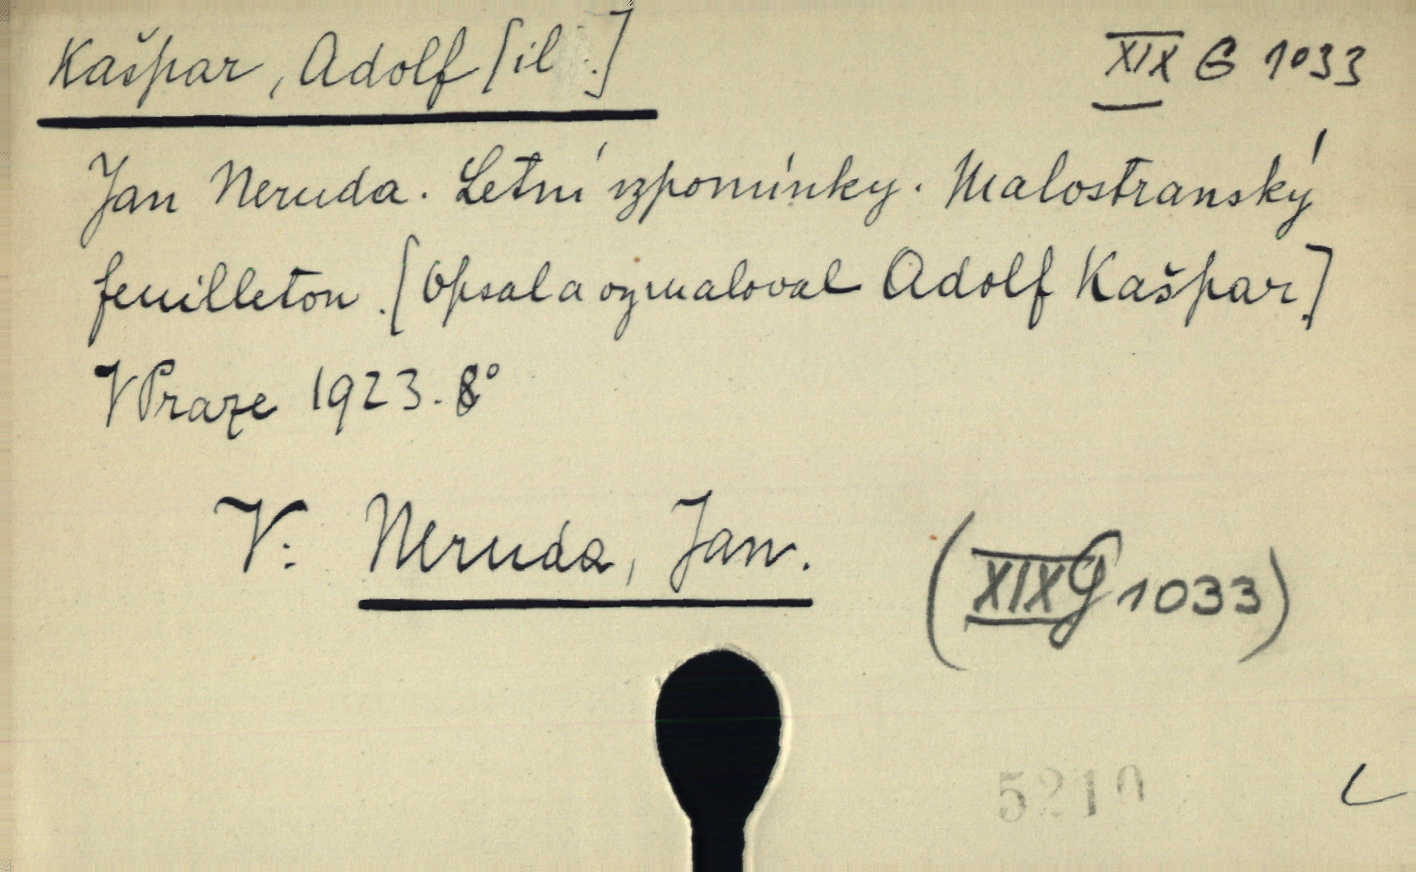 Kašpar, Adolf [il.]
XIX G 1033
Jan Neruda. Letní vzpomínky. Malostranský
feuilleton. [Opsal a ozmaloval Adolf Kašpar.]
V Praze 1923. 8°
V: Neruda, Jan.
(XIX G 1033)
5210